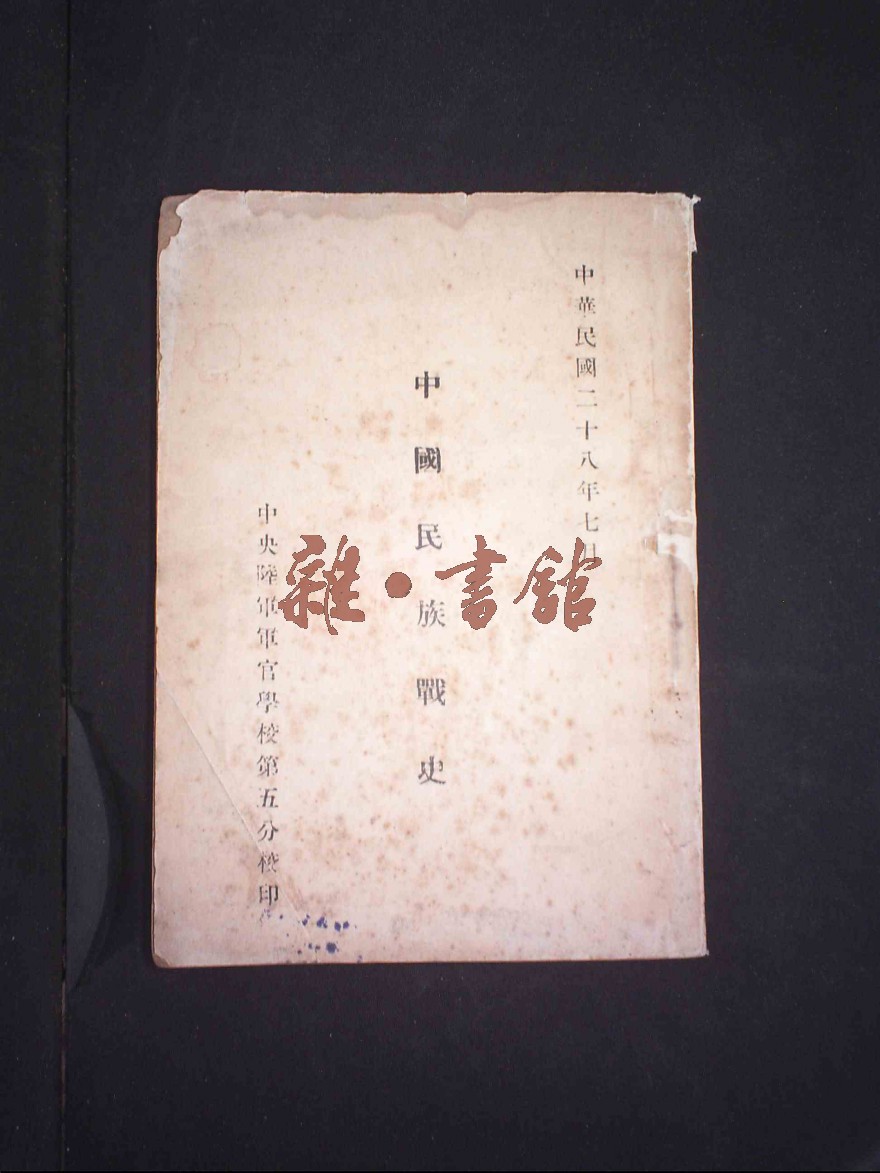 中華民國二十八年七月
中國民族戰史
中央陸軍軍官學校第五分校印
雜·書館